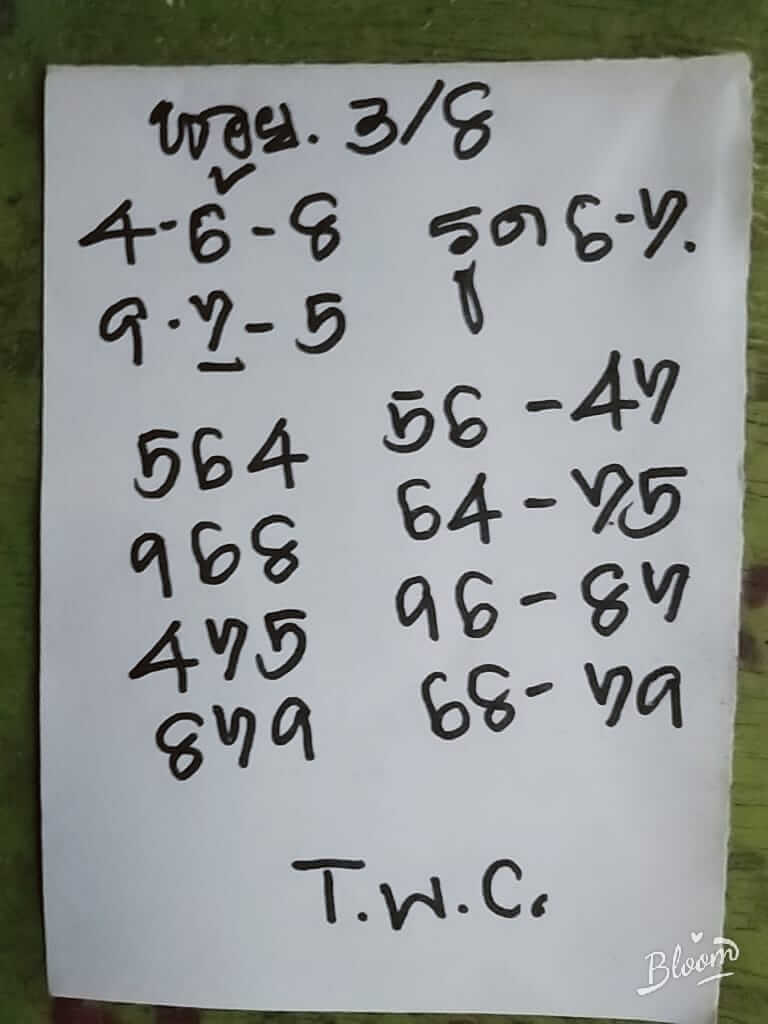 หวย. 3/8
4-6-8 รูด 6-7.
9.7-5
564 56-47
968 64-75
475 96-87
879 68-79
T.W.C.
Bloom